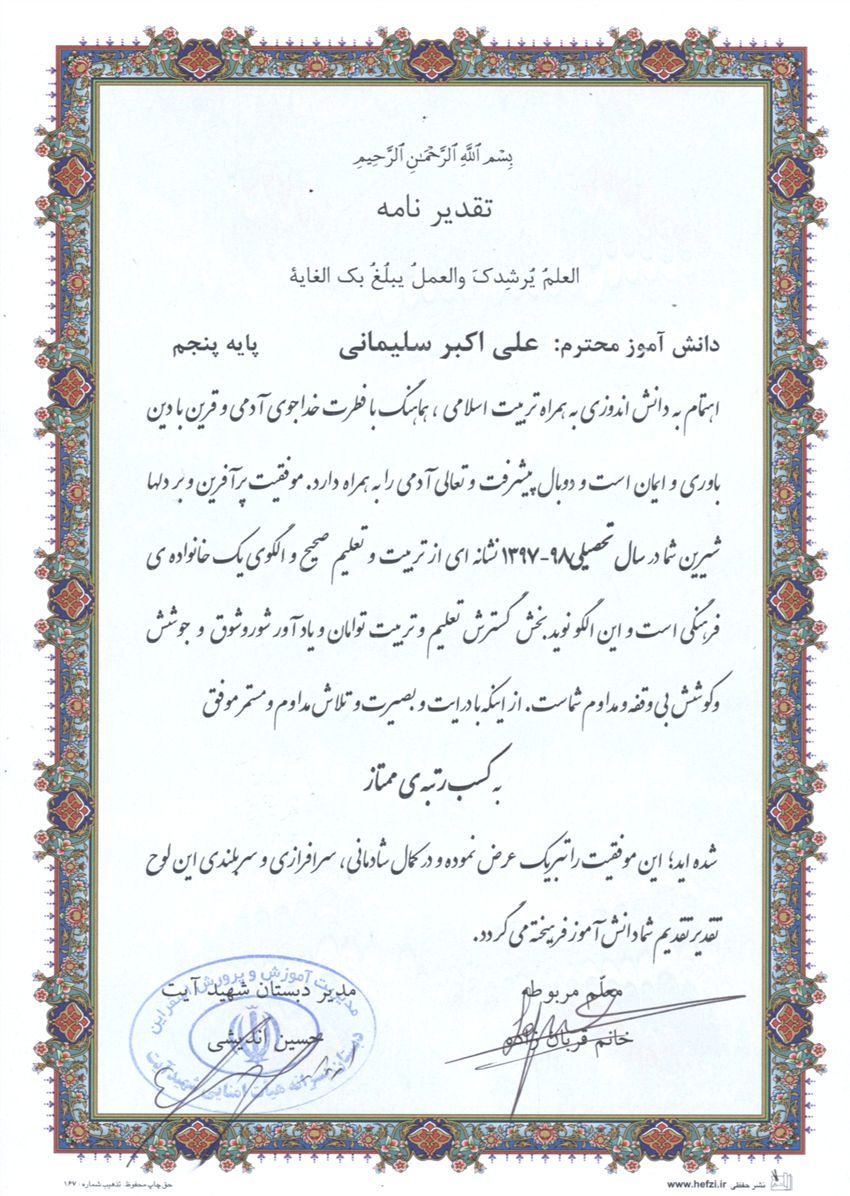 بِسْمِ ٱللَّهِ ٱلرَّحْمَـٰنِ ٱلرَّحِيمِ
تقدیر نامه
العلمُ یُرشِدکَ والعملُ یبلُغُ بک الغایة
دانش آموز محترم: علی اکبر سلیمانی پایه پنجم
اهتمام به دانش اندوزی به همراه تربیت اسلامی ، هماهنگ با فطرت خداجوی آدمی و قرین با دین
باوری و ایمان است و دو بال پیشرفت و تعالی آدمی را به همراه دارد. موفقیت پرآفرین و بر دلها
شیرین شما در سال تحصیلی ۹۸-۱۳۹۷ نشانه ای از تربیت و تعلیم صحیح و الگوی یک خانواده ی
فرهنگی است و این الگو نوید بخش گسترش تعلیم و تربیت توامان و یادآور شور و شوق و جوشش
و کوشش بی وقفه و مداوم شماست. از اینکه با درایت و بصیرت و تلاش مداوم و مستمر موفق
به کسب رتبه ی ممتاز
شده اید؛ این موفقیت را تبریک عرض نموده و در کمال شادمانی، سرافرازی و سربلندی این لوح
تقدیر تقدیم شما دانش آموز فرهیخته می گردد.
معلّم مربوطه
خانم قربان
مدیر دبستان شهید آیت
حسین اندیشی
مدیریت آموزش و پرورش
دبستان پسرانه هیأت امنایی شهید آیت
نشر حفظی www.hefzi.ir
حق چاپ محفوظ. تذهیب شماره ۱۶۷۰